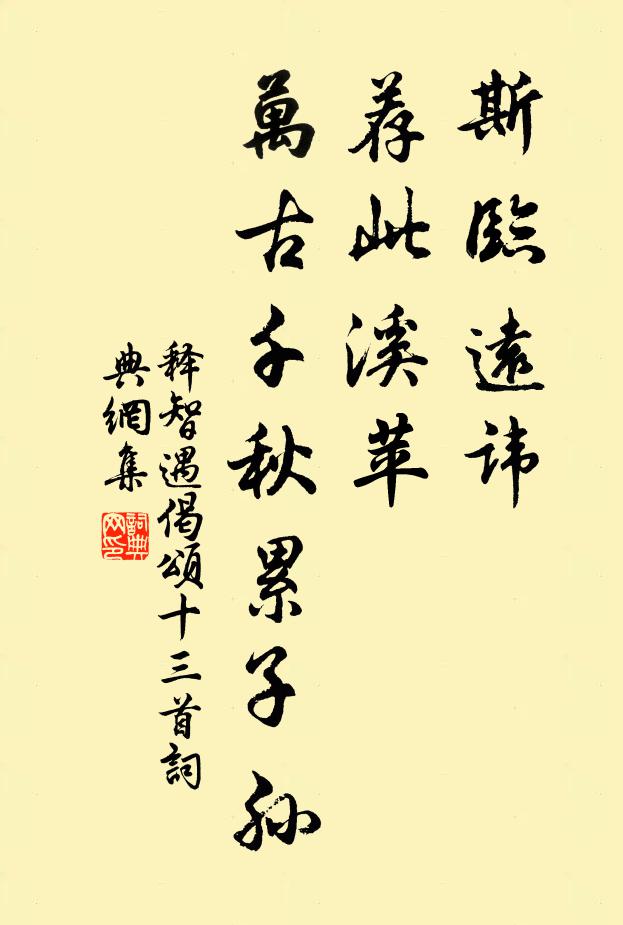 斯臨遠讳
荐此溪苹
萬古千秋累子孙
释智遇偈頌十三首詞
典網集
詞典网印